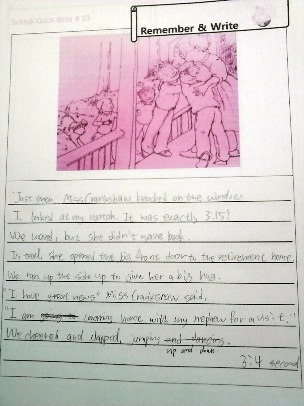 Scholastic Quick Write # 23
Remember & Write
"Just then, Miss Crankshaw knocked on the window
I looked at my watch. It was exactly 3:15!
We waved, but she didn't wave back.
Instead, she opened the big front door to the retirement home
We ran up the side up to give her a big hug.
"I have great news" Miss Crankshaw said,
"I am coming home with my nephew for a visit."
We cheered and clapped, jumping and dancing.
up and down
3:4 second